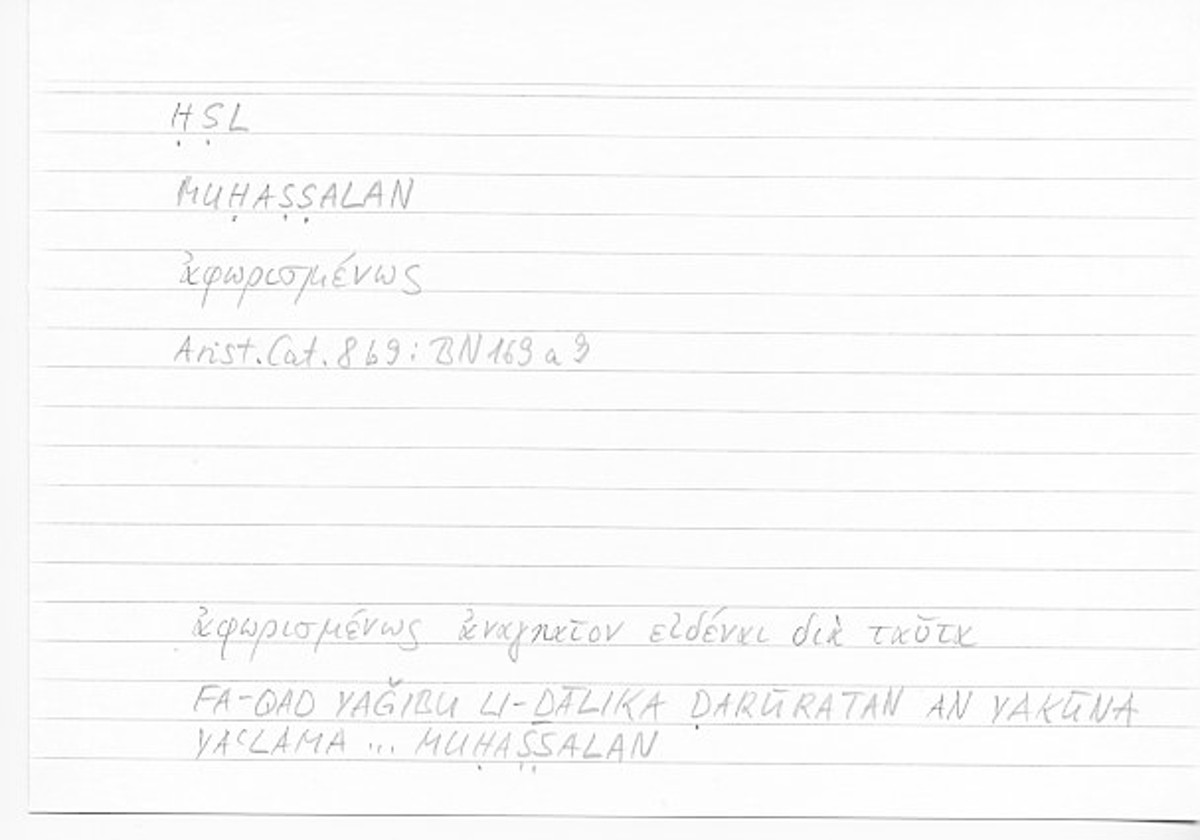 ḤṢL
MUḤAṢṢALAN
ἀφωρισμένως
Arist. Cat. 8 b 9 : BN 169 a 9
ἀφωρισμένως ἀναγκαῖον εἰδέναι διὰ ταῦτα
FA-QAD YAǦIBU LI-ḎĀLIKA ḌARŪRATAN AN YAKŪNA
YAʿLAMA ... MUḤAṢṢALAN